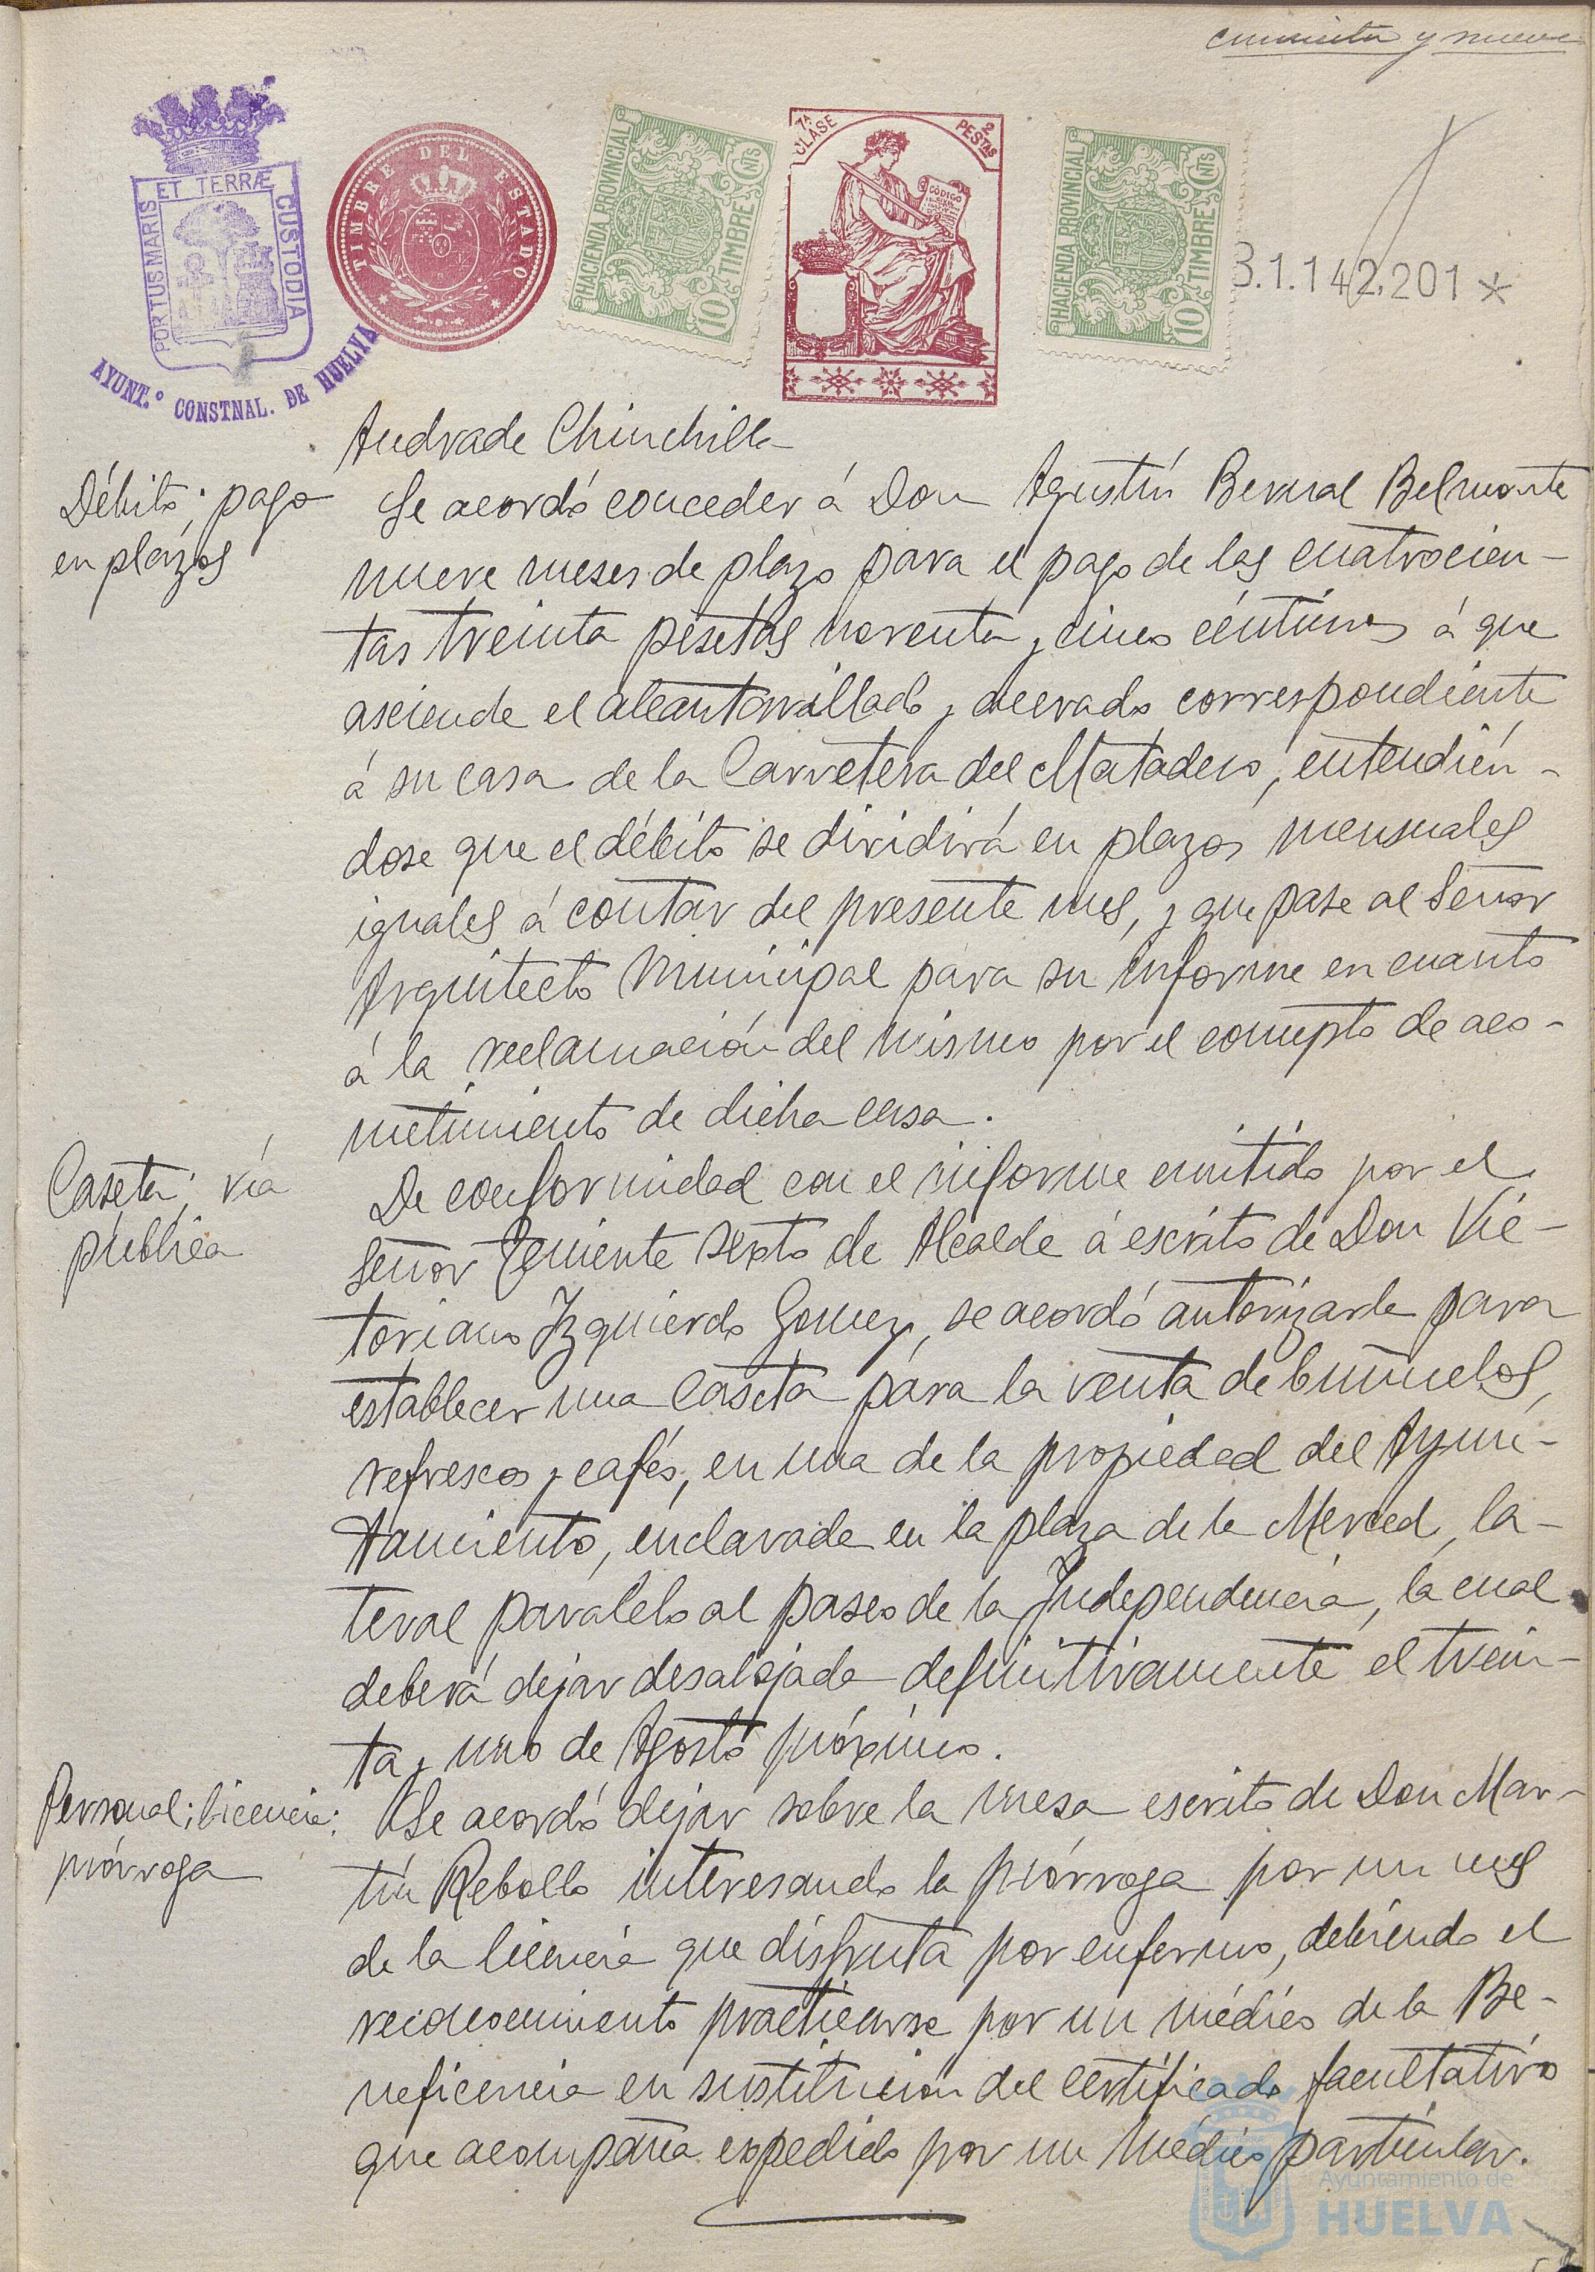 cincuenta y nueve
PORTUS MARIS ET TERRÆ CUSTODIA
AYUNT.º CONSTNAL. DE HUELVA
TIMBRE DEL ESTADO
HACIENDA PROVINCIAL
TIMBRE 10 CNTS
7ª CLASE
2 PESETAS
CÓDIGO
HACIENDA PROVINCIAL
TIMBRE 10 CNTS
B.1.142,201 *
Andrade Chinchilla
Débito; pago
en plazos
Se acordó conceder á Don Agustín Bernal Belmonte
nueve meses de plazo para el pago de las cuatrocien-
tas treinta pesetas noventa y cinco céntimos á que
asciende el alcantarillado y acerado correspondiente
á su casa de la Carretera del Matadero, entendién-
dose que el débito se dividirá en plazos mensuales
iguales á contar del presente mes, y que pase al Señor
Arquitecto Municipal para su informe en cuanto
á la reclamación del mismo por el concepto de aco-
metimiento de dicha casa.
Caseta; vía
pública
De conformidad con el informe emitido por el
Señor Teniente sexto de Alcalde á escrito de Don Vic-
toriano Izquierdo Gomez, se acordó autorizarle para
establecer una caseta para la venta de buñuelos,
refrescos y cafés, en una de la propiedad del Ayun-
tamiento, enclavada en la plaza de la Merced, la-
teral paralelo al paseo de la Independencia, la cual
deberá dejar desalojada definitivamente el trein-
ta y uno de Agosto próximo.
Personal; licencia;
prórroga
Se acordó dejar sobre la mesa escrito de Don Mar-
tín Rebollo interesando la prórroga por un mes
de la licencia que disfruta por enfermo, debiendo el
reconocimiento practicarse por un médico de la Be-
neficencia en sustitución del certificado facultativo
que acompaña expedido por un médico particular.
Ayuntamiento de
HUELVA